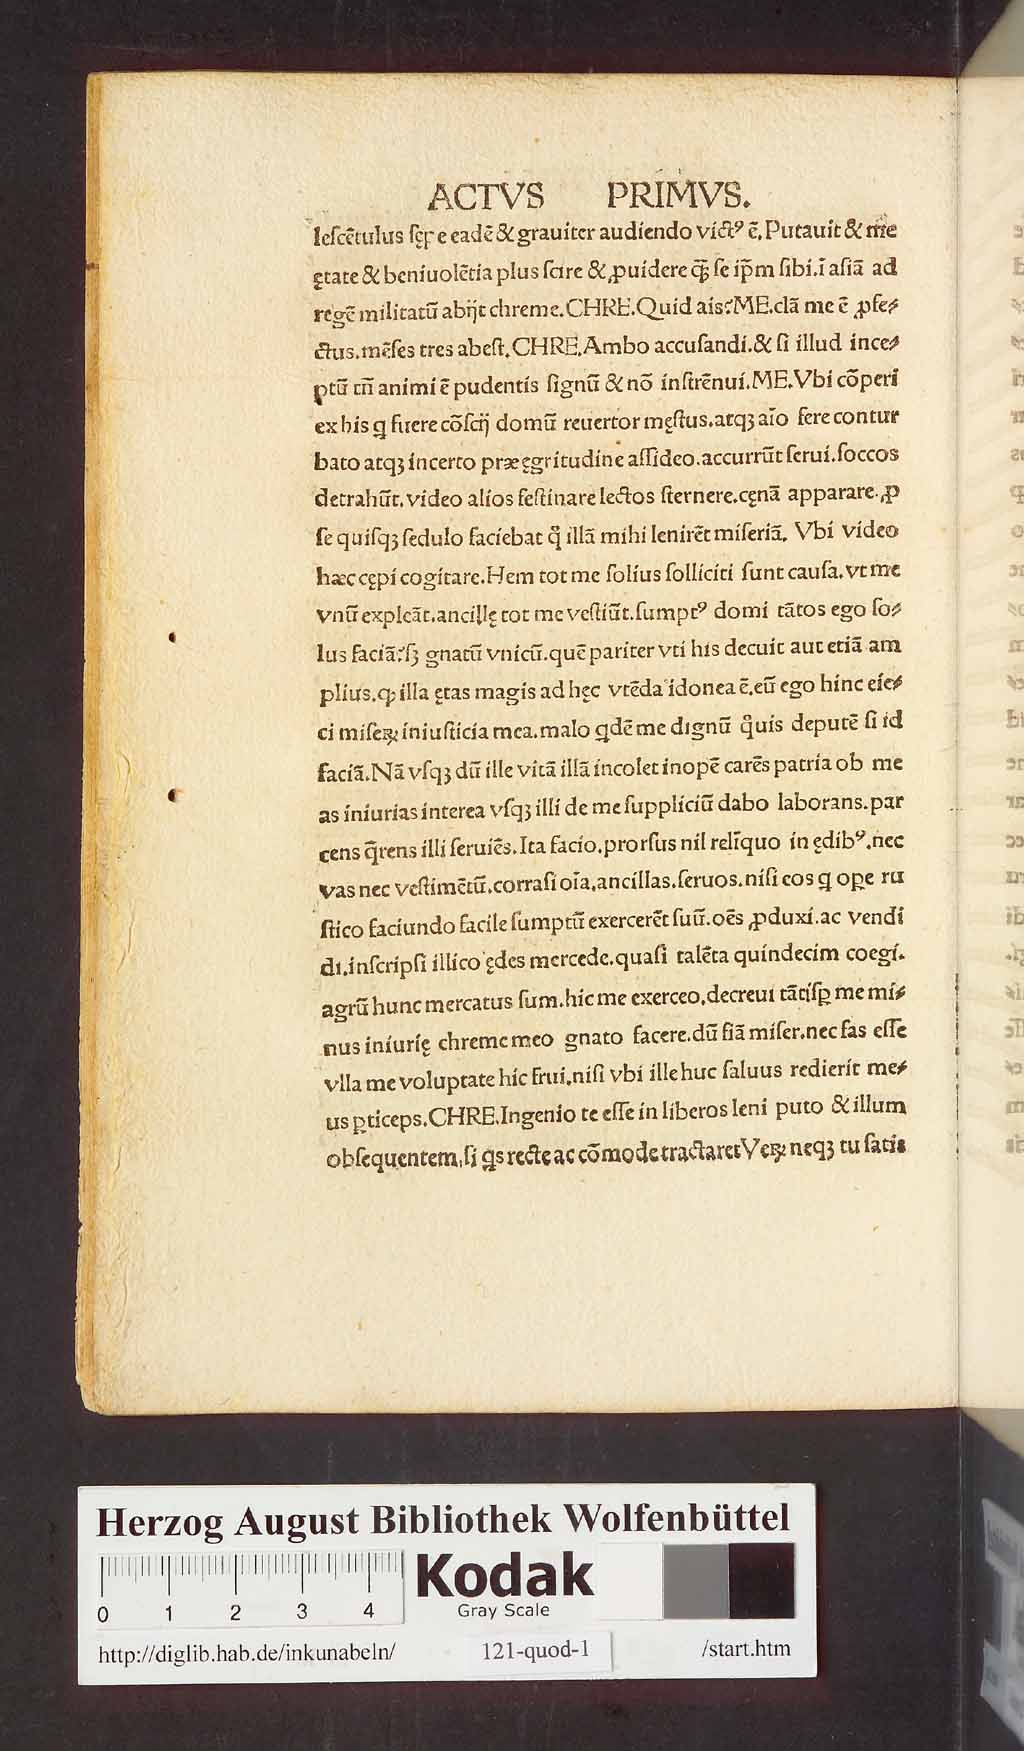 ACTVS PRIMVS.
leſcẽtulus ſępe eadẽ & grauiter audiendo vict⁹ ẽ. Putauit & me
ętate & beniuolẽtia plus ſcire & ꝓuidere q̃ꝫ ſe ip̃m ſibi. ĩ aſiã ad
regẽ militatũ abijt chreme. CHRE. Quid ais? ME. clã me ẽ ꝓfe⸗
ctus. mẽſes tres abeſt. CHRE. Ambo accuſandi. & ſi illud ince⸗
ptũ tñ animi ẽ pudentis ſignũ & nõ inſtrẽnui. ME. Vbi cõperi
ex his q fuere cõſcij domũ reuertor męſtus. atqꝫ aĩo fere contur
bato atqꝫ incerto præ ęgritudine aſſideo. accurrũt ſerui. ſoccos
detrahũt. video alios feſtinare lectos ſternere. cęnã apparare. ꝓ
ſe quiſqꝫ ſedulo faciebat q̊ illã mihi lenirẽt miſeriã. Vbi video
hæc cępi cogitare. Hem tot me ſolius ſolliciti ſunt cauſa. vt me
vnũ expleãt. ancillę tot me veſtiũt. ſumpt⁹ domi tãtos ego ſo⸗
lus faciã? ſꝫ gnatũ vnicũ. quẽ pariter vti his decuit aut etiã am
plius. ꝙ illa ętas magis ad hęc vtẽda idonea ẽ. eũ ego hinc eie⸗
ci miſeꝝ iniuſticia mea. malo qdẽ me dignũ q̊uis deputẽ ſi id
faciã. Nã vſqꝫ dũ ille vitã illã incolet inopẽ carẽs patria ob me
as iniurias interea vſqꝫ illi de me ſuppliciũ dabo laborans. par
cens q̃rens illi ſeruiẽs. Ita facio. prorſus nil relĩquo in ędib⁹. nec
vas nec veſtimẽtũ. corraſi oĩa. ancillas. ſeruos. niſi eos q oꝑe ru
ſtico faciundo facile ſumptũ exercerẽt ſuũ. oẽs ꝓduxi. ac vendi
di. inſcripſi illico ędes mercede. quaſi talẽta quindecim coegi.
agrũ hunc mercatus ſum. hic me exerceo. decreui tãtiſꝑ me mi⸗
nus iniurię chreme meo gnato facere. dũ fiã miſer. nec fas eſſe
vlla me voluptate hic frui. niſi vbi ille huc ſaluus redierit me⸗
us ꝑticeps. CHRE. Ingenio te eſſe in liberos leni puto & illum
obſequentem. ſi qs recte ac cõmode tractaret Veꝝ neqꝫ tu ſatis
Herzog August Bibliothek Wolfenbüttel
0 1 2 3 4
Kodak
Gray Scale
http://diglib.hab.de/inkunabeln/ 121-quod-1 /start.htm